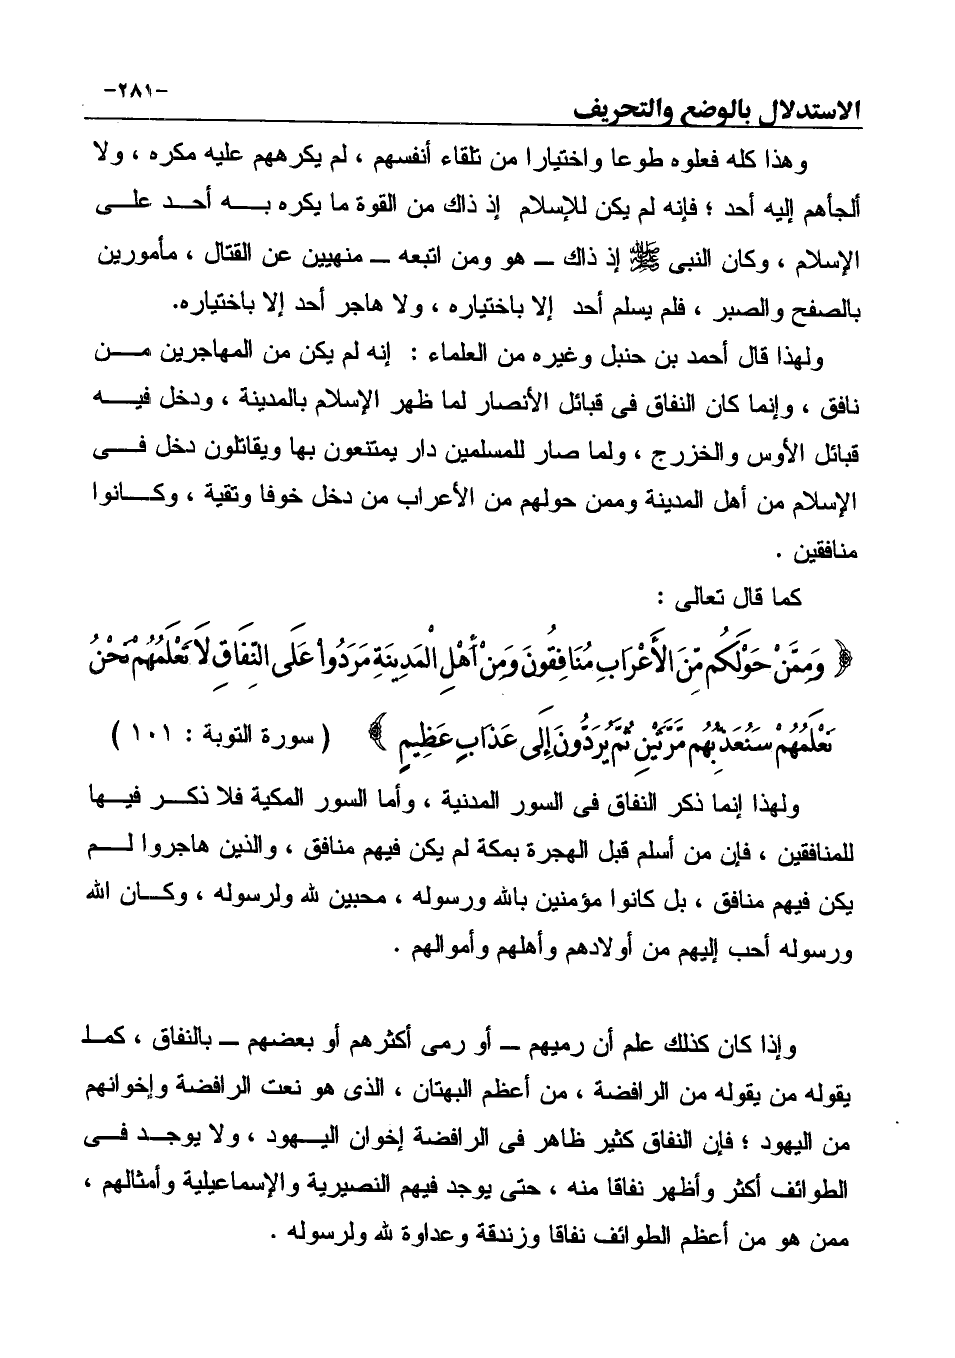 -٢٨١-
الاستدلال بالوضع والتحريف
وهذا كله فعلوه طوعا واختيارا من تلقاء أنفسهم ، لم يكرههم عليه مكره ، ولا
ألجأهم إليه أحد ؛ فإنه لم يكن للإسلام إذ ذاك من القوة ما يكره بــه أحــد علــى
الإسلام ، وكان النبى ﷺ إذ ذاك ــ هو ومن اتبعه ــ منهيين عن القتال ، مأمورين
بالصفح والصبر ، فلم يسلم أحد إلا باختياره ، ولا هاجر أحد إلا باختياره.
ولهذا قال أحمد بن حنبل وغيره من العلماء : إنه لم يكن من المهاجرين مــن
نافق ، وإنما كان النفاق فى قبائل الأنصار لما ظهر الإسلام بالمدينة ، ودخل فيــه
قبائل الأوس والخزرج ، ولما صار للمسلمين دار يمتنعون بها ويقاتلون دخل فــى
الإسلام من أهل المدينة وممن حولهم من الأعراب من دخل خوفا وتقية ، وكــانوا
منافقين .
كما قال تعالى :
﴿ وَمِمَّنْ حَوْلَكُم مِّنَ الْأَعْرَابِ مُنَافِقُونَ وَمِنْ أَهْلِ الْمَدِينَةِ مَرَدُواْ عَلَى النِّفَاقِ لَا تَعْلَمُهُمْ نَحْنُ
نَعْلَمُهُمْ سَنُعَذِّبُهُم مَّرَّتَيْنِ ثُمَّ يُرَدُّونَ إِلَى عَذَابٍ عَظِيمٍ ﴾ ( سورة التوبة : ١٠١ )
ولهذا إنما ذكر النفاق فى السور المدنية ، وأما السور المكية فلا ذكــر فيــها
للمنافقين ، فإن من أسلم قبل الهجرة بمكة لم يكن فيهم منافق ، والذين هاجروا لــم
يكن فيهم منافق ، بل كانوا مؤمنين بالله ورسوله ، محبين لله ولرسوله ، وكــان الله
ورسوله أحب إليهم من أولادهم وأهلهم وأموالهم .
وإذا كان كذلك علم أن رميهم ــ أو رمى أكثرهم أو بعضهم ــ بالنفاق ، كمــا
يقوله من يقوله من الرافضة ، من أعظم البهتان ، الذى هو نعت الرافضة وإخوانهم
من اليهود ؛ فإن النفاق كثير ظاهر فى الرافضة إخوان اليــهود ، ولا يوجــد فــى
الطوائف أكثر وأظهر نفاقا منه ، حتى يوجد فيهم النصيرية والإسماعيلية وأمثالهم ،
ممن هو من أعظم الطوائف نفاقا وزندقة وعداوة لله ولرسوله .